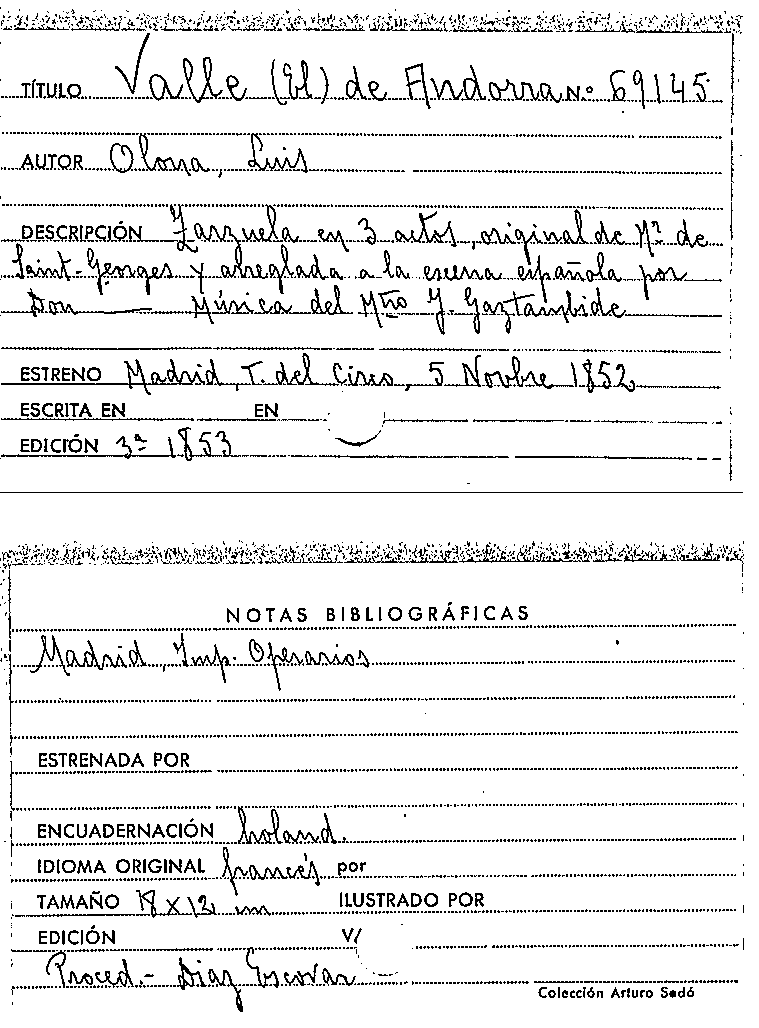 TÍTULO Valle (El) de Andorra N.º 69145
AUTOR Olona, Luis
DESCRIPCIÓN Zarzuela en 3 actos, original de Mr. de
Saint-Georges y arreglada a la escena española por
Don —— Música del Mtro J. Gaztambide
ESTRENO Madrid, T. del Circo, 5 Novbre 1852
ESCRITA EN EN
EDICIÓN 3ª 1853
NOTAS BIBLIOGRÁFICAS
Madrid, Imp. Operarios
ESTRENADA POR
ENCUADERNACIÓN holand.
IDIOMA ORIGINAL francés por
TAMAÑO 18 x 12 cm ILUSTRADO POR
EDICIÓN V/
Proced.- Diaz Escovar
Colección Arturo Sedó